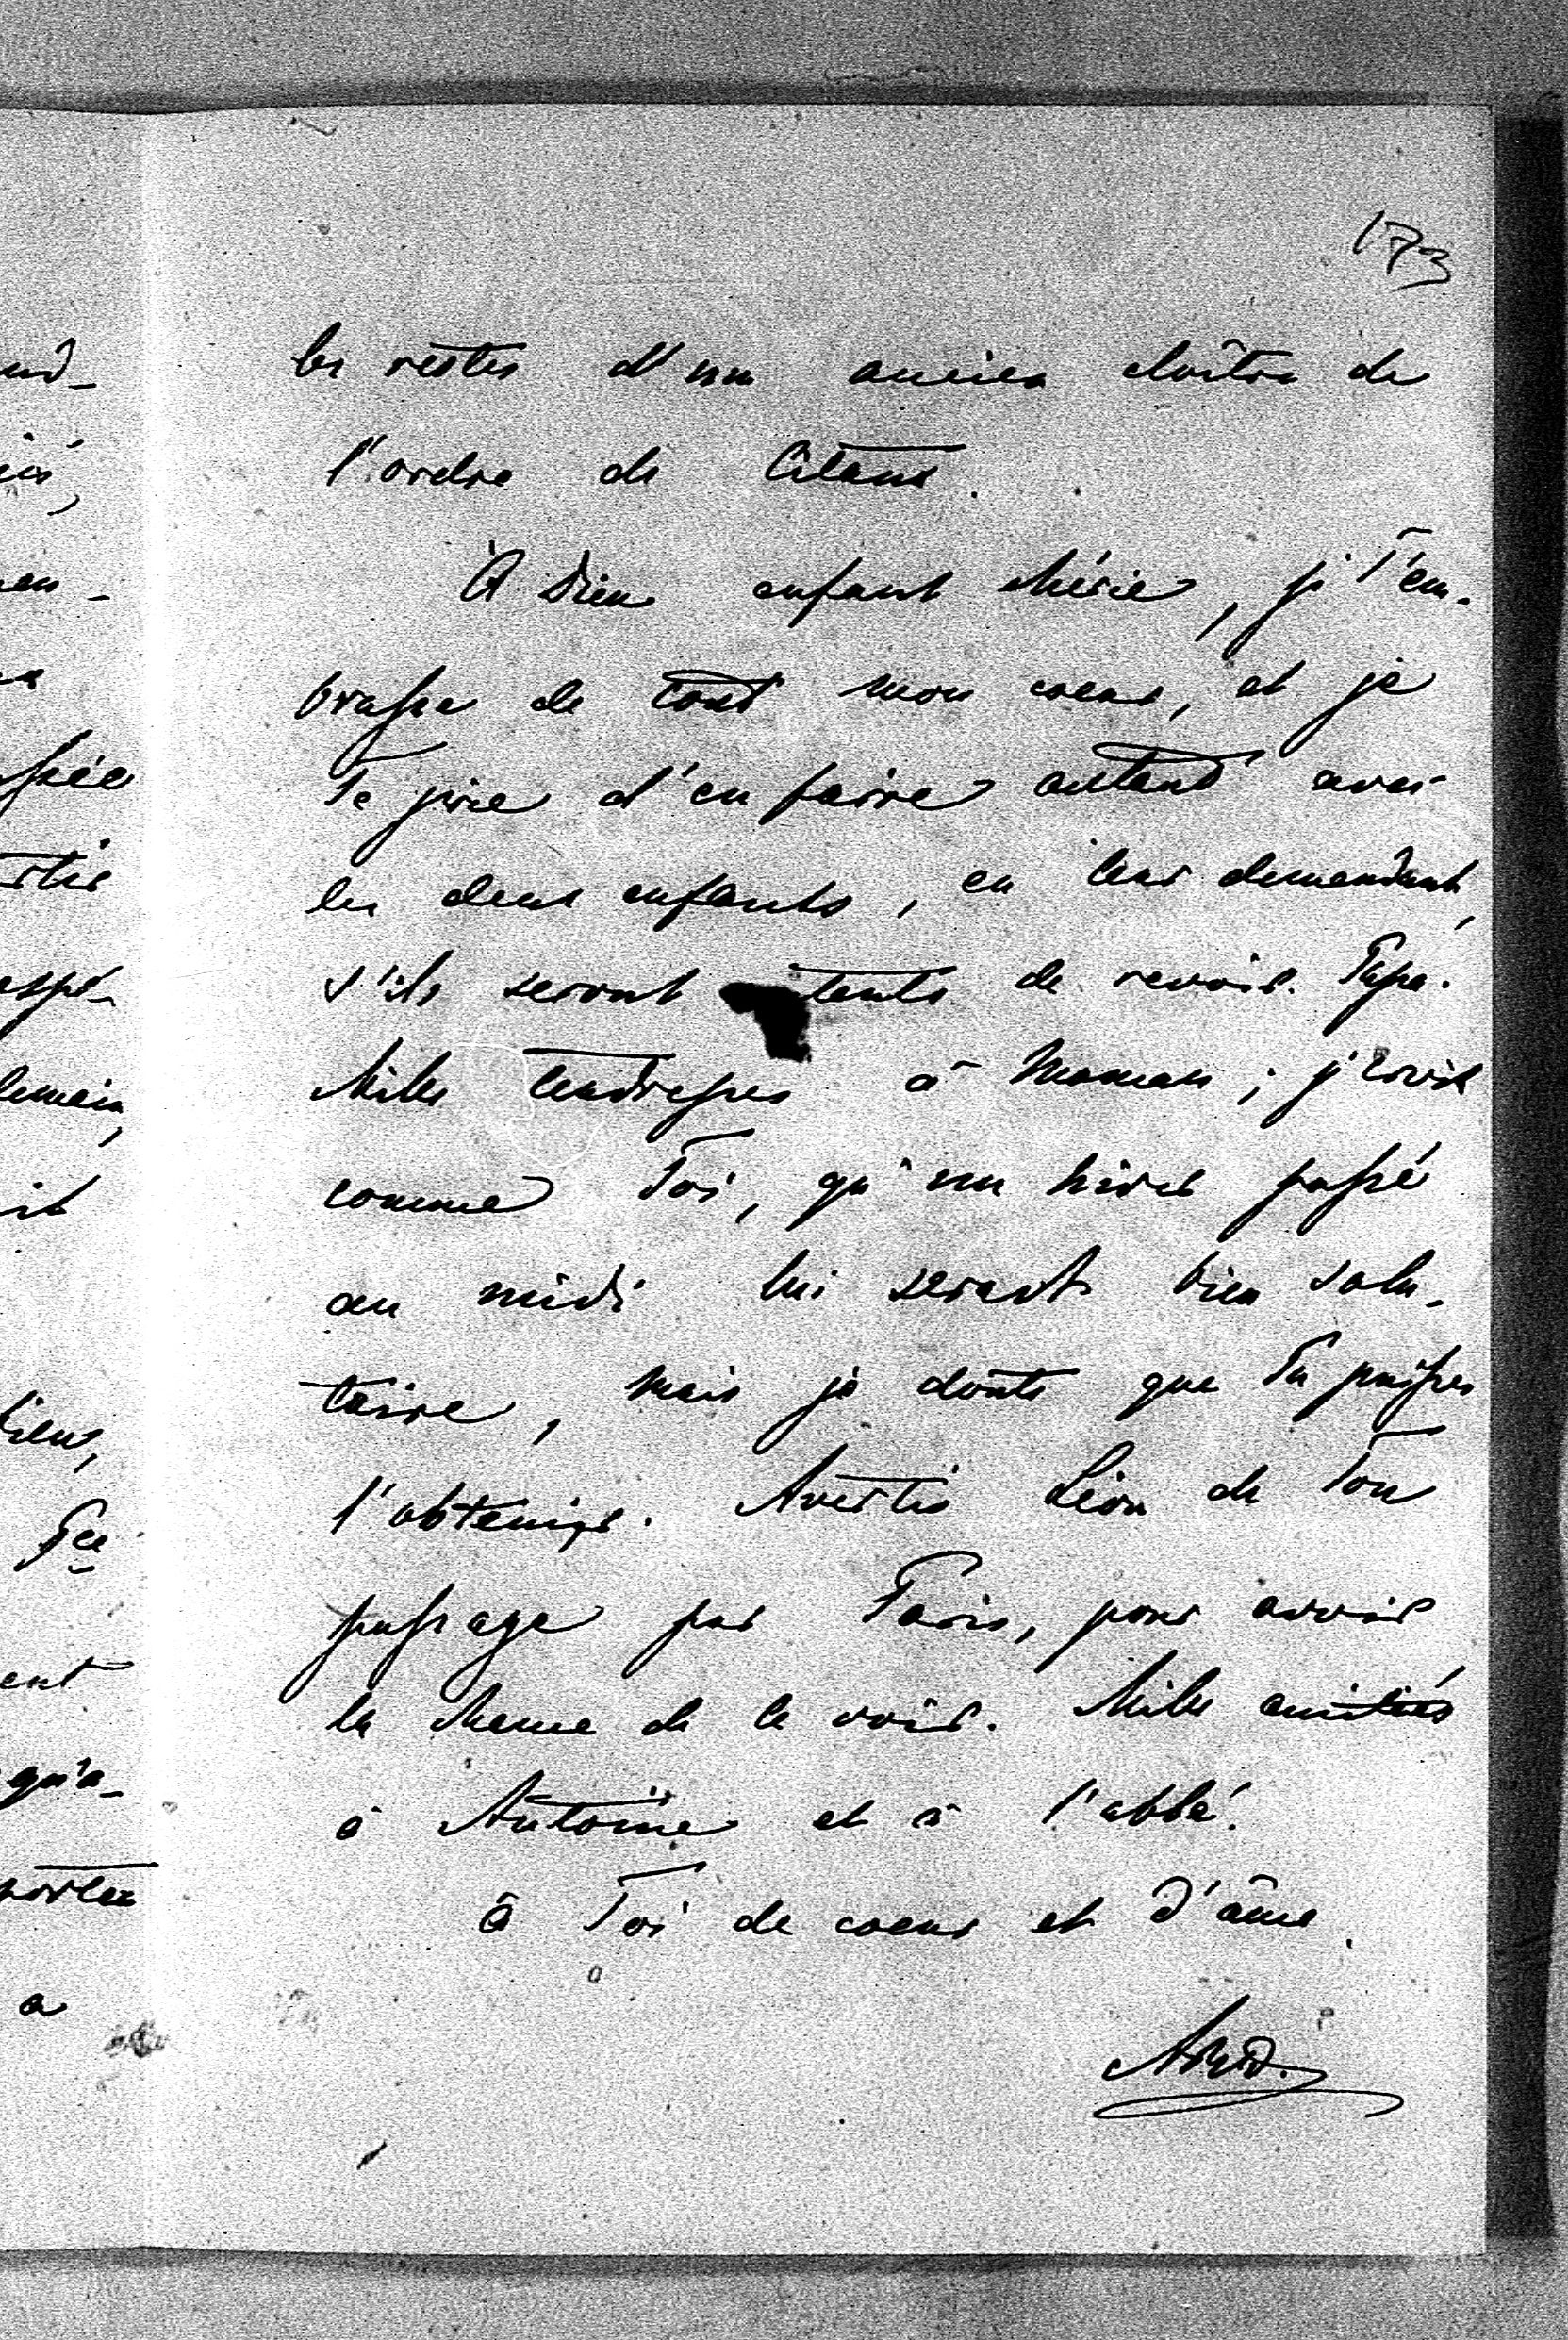 173
les restes d'un ancien cloître de
l'ordre de Citaux.
À Dieu enfant chérie, je T'em-
brasse de tout mon coeur, et je
Te prie d'en faire autant avec
les deux enfants, en leur demandant,
s'ils seront tents de revoir Papa.
Milles tendresses à Maman ; j'crois
comme Toi, qu'un hiver passé
au midi lui serait bien salu-
taire, mais je doute que Tu puisses
l'obtenir. Avertis Léon de Ton
passage par Paris, pour avoir
la chance de le voir. Milles amitiés
à Antoine et à l'abbé.
à Toi de coeur et d'âme.